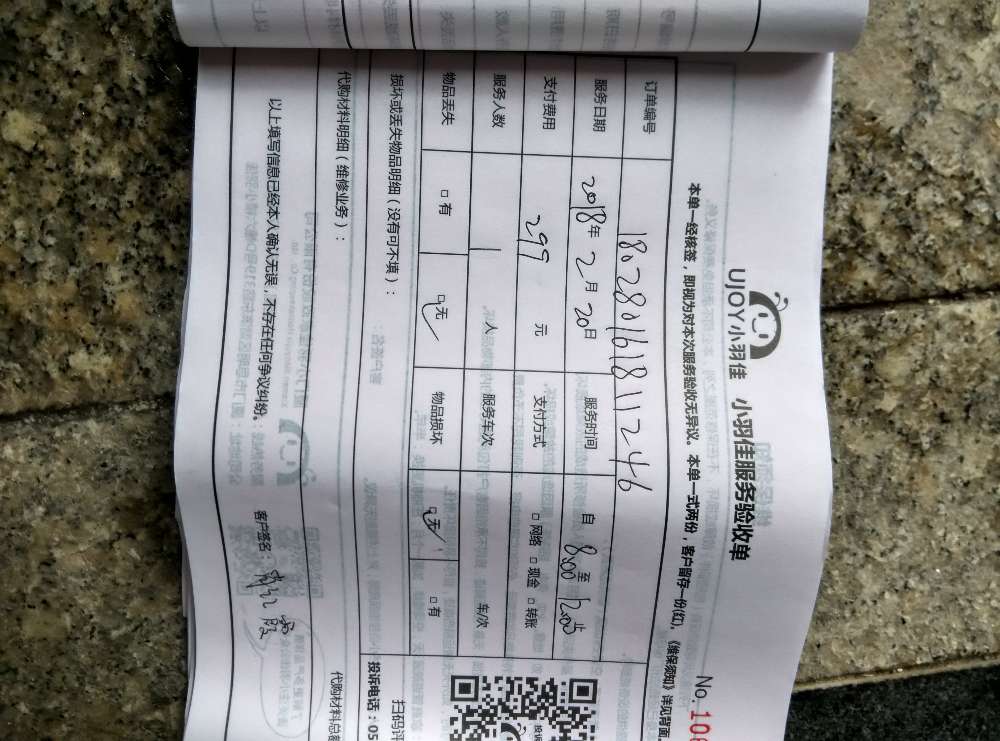 UJOY小羽佳 小羽佳服务验收单
No. 108
本单一经核签，即视为对本次服务验收无异议。本单一式两份，客户留存一份(红)，《维保须知》详见背面。
订单编号 18028016181 1246
服务日期 2018年 2月 20日 服务时间 自 8:00 至 12:00 止
支付费用 299 元 支付方式 □网络 □现金 □转账
服务人数 1 人 服务车次 车/次
物品丢失 □有 □无✓ 物品损坏 □无✓ □有
损坏或丢失物品明细（没有可不填）：
扫码评
投诉电话：05
代购材料明细（维修业务）：
代购材料总额
以上填写信息已经本人确认无误，不存在任何争议纠纷。
客户签名：